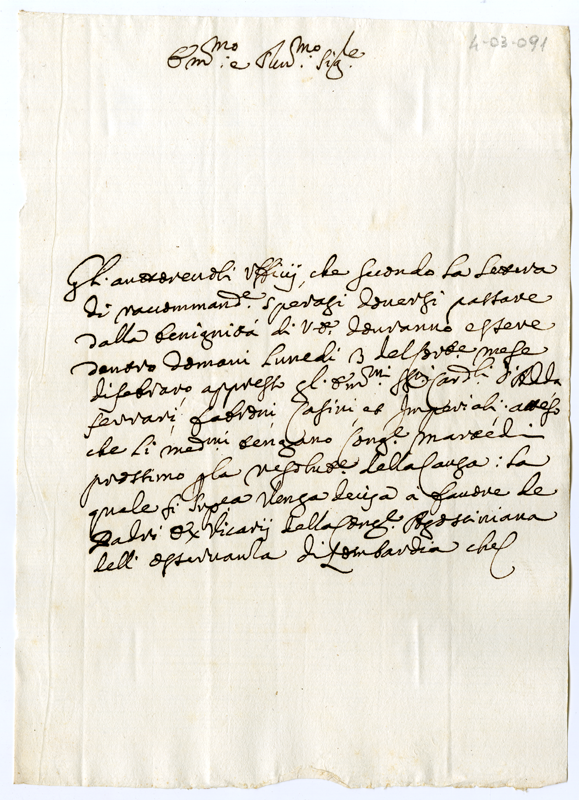 4-03-091
Em.mo e Rev.mo Sig.re
Gli autorevoli Ufficij, che secondo la lettera
di raccommand.e sperasi doversi passare
dalla benignità di V.E. dovranno essere
dentro domani Lunedì 3 del mese
di febraro appresso gl'Em.mi SS.ri Card.li d'Adda
Ferrari, Fabroni, Casini et Imperiali: attesto
che li med.mi tengano Cong.e Martedì
prossimo p la resolut.e della Causa: la
quale si spera venga decisa a favore de
Padri ex Vicarij della Cong.e Agostiniana
dell'osservanza di Lombardia che